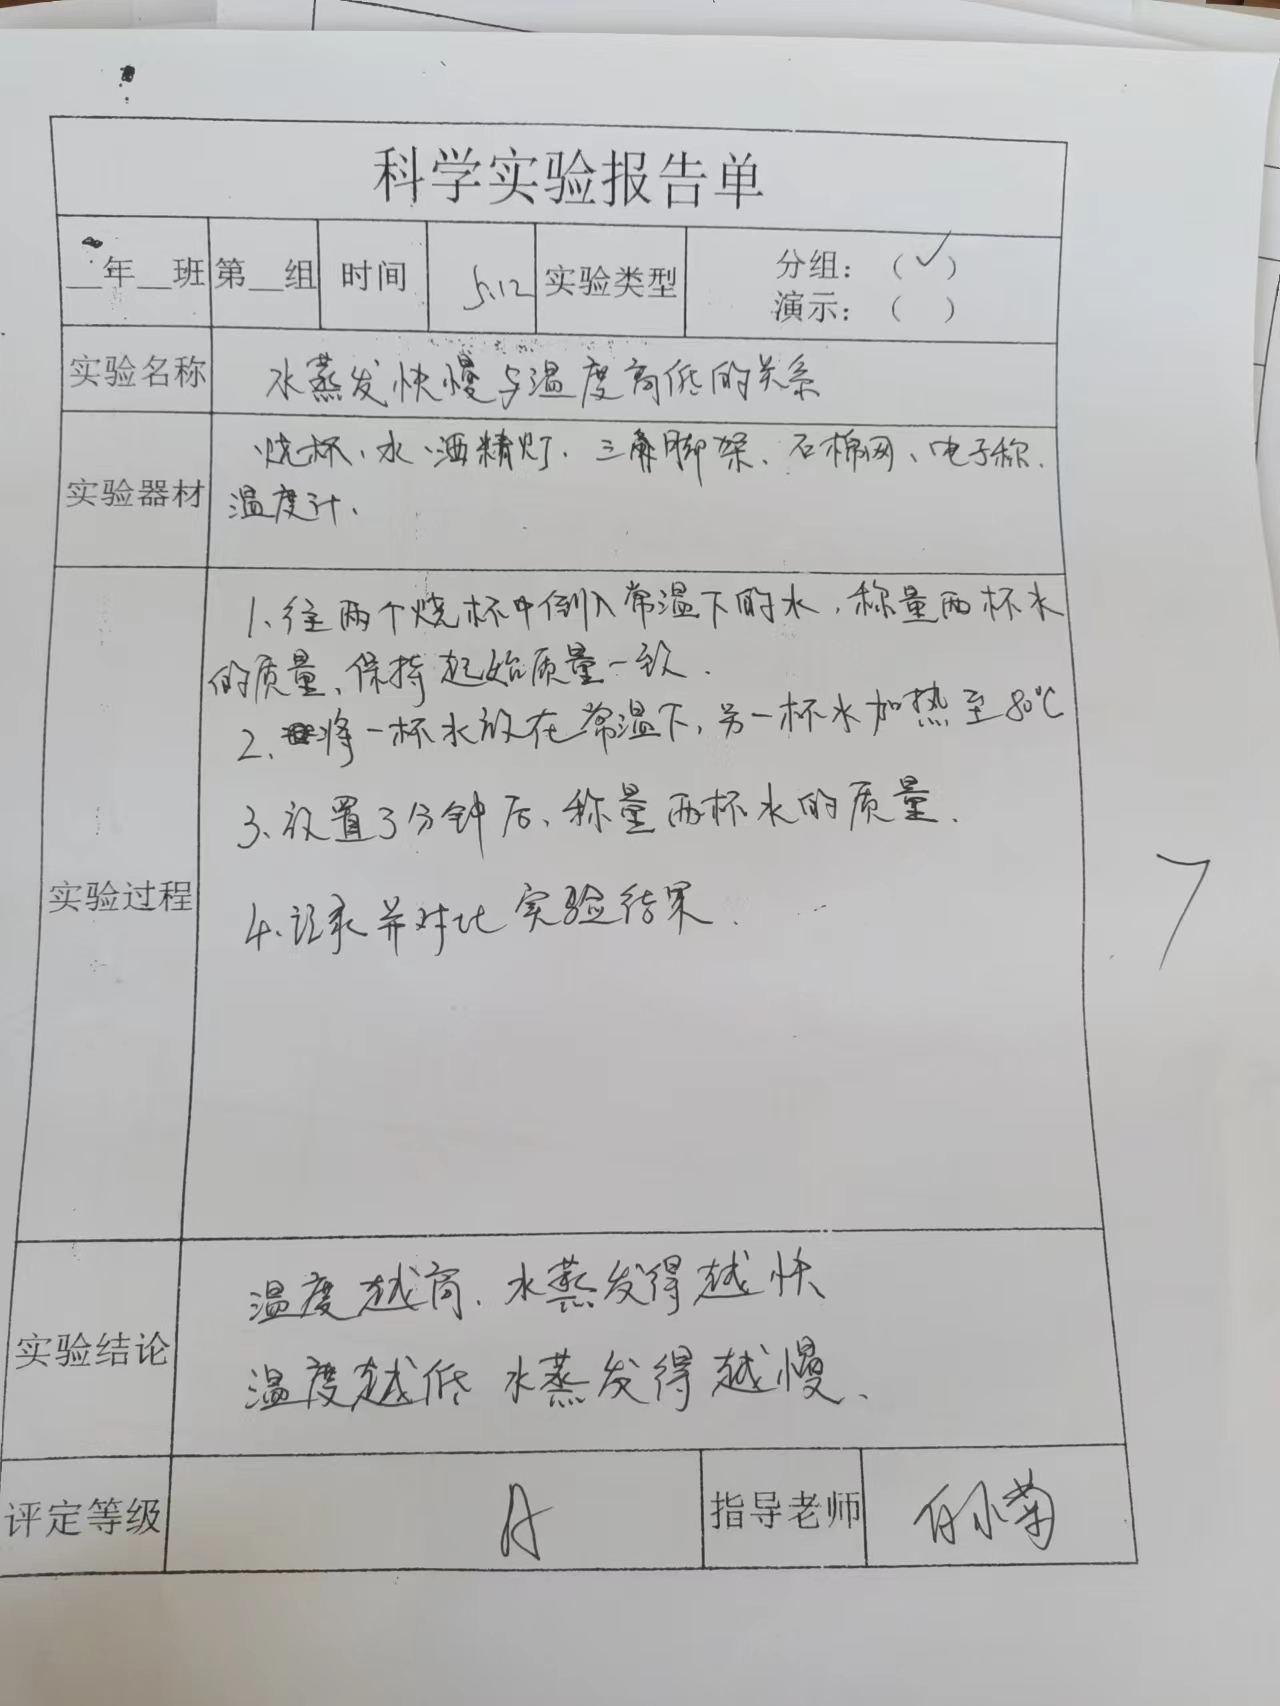 科学实验报告单
__年__班 第__组 时间 5.12 实验类型 分组：（✓）
演示：（ ）
实验名称 水蒸发快慢与温度高低的关系
实验器材 烧杯、水、酒精灯、三角脚架、石棉网、电子称、
温度计、
实验过程
1、往两个烧杯中倒入常温下的水，称量两杯水
的质量、保持起始质量一致.
2、将一杯水放在常温下，另一杯水加热至80℃
3、放置3分钟后、称量两杯水的质量.
4、记录并对比实验结果.
7
实验结论 温度越高、水蒸发得越快
温度越低 水蒸发得越慢、
评定等级 A 指导老师